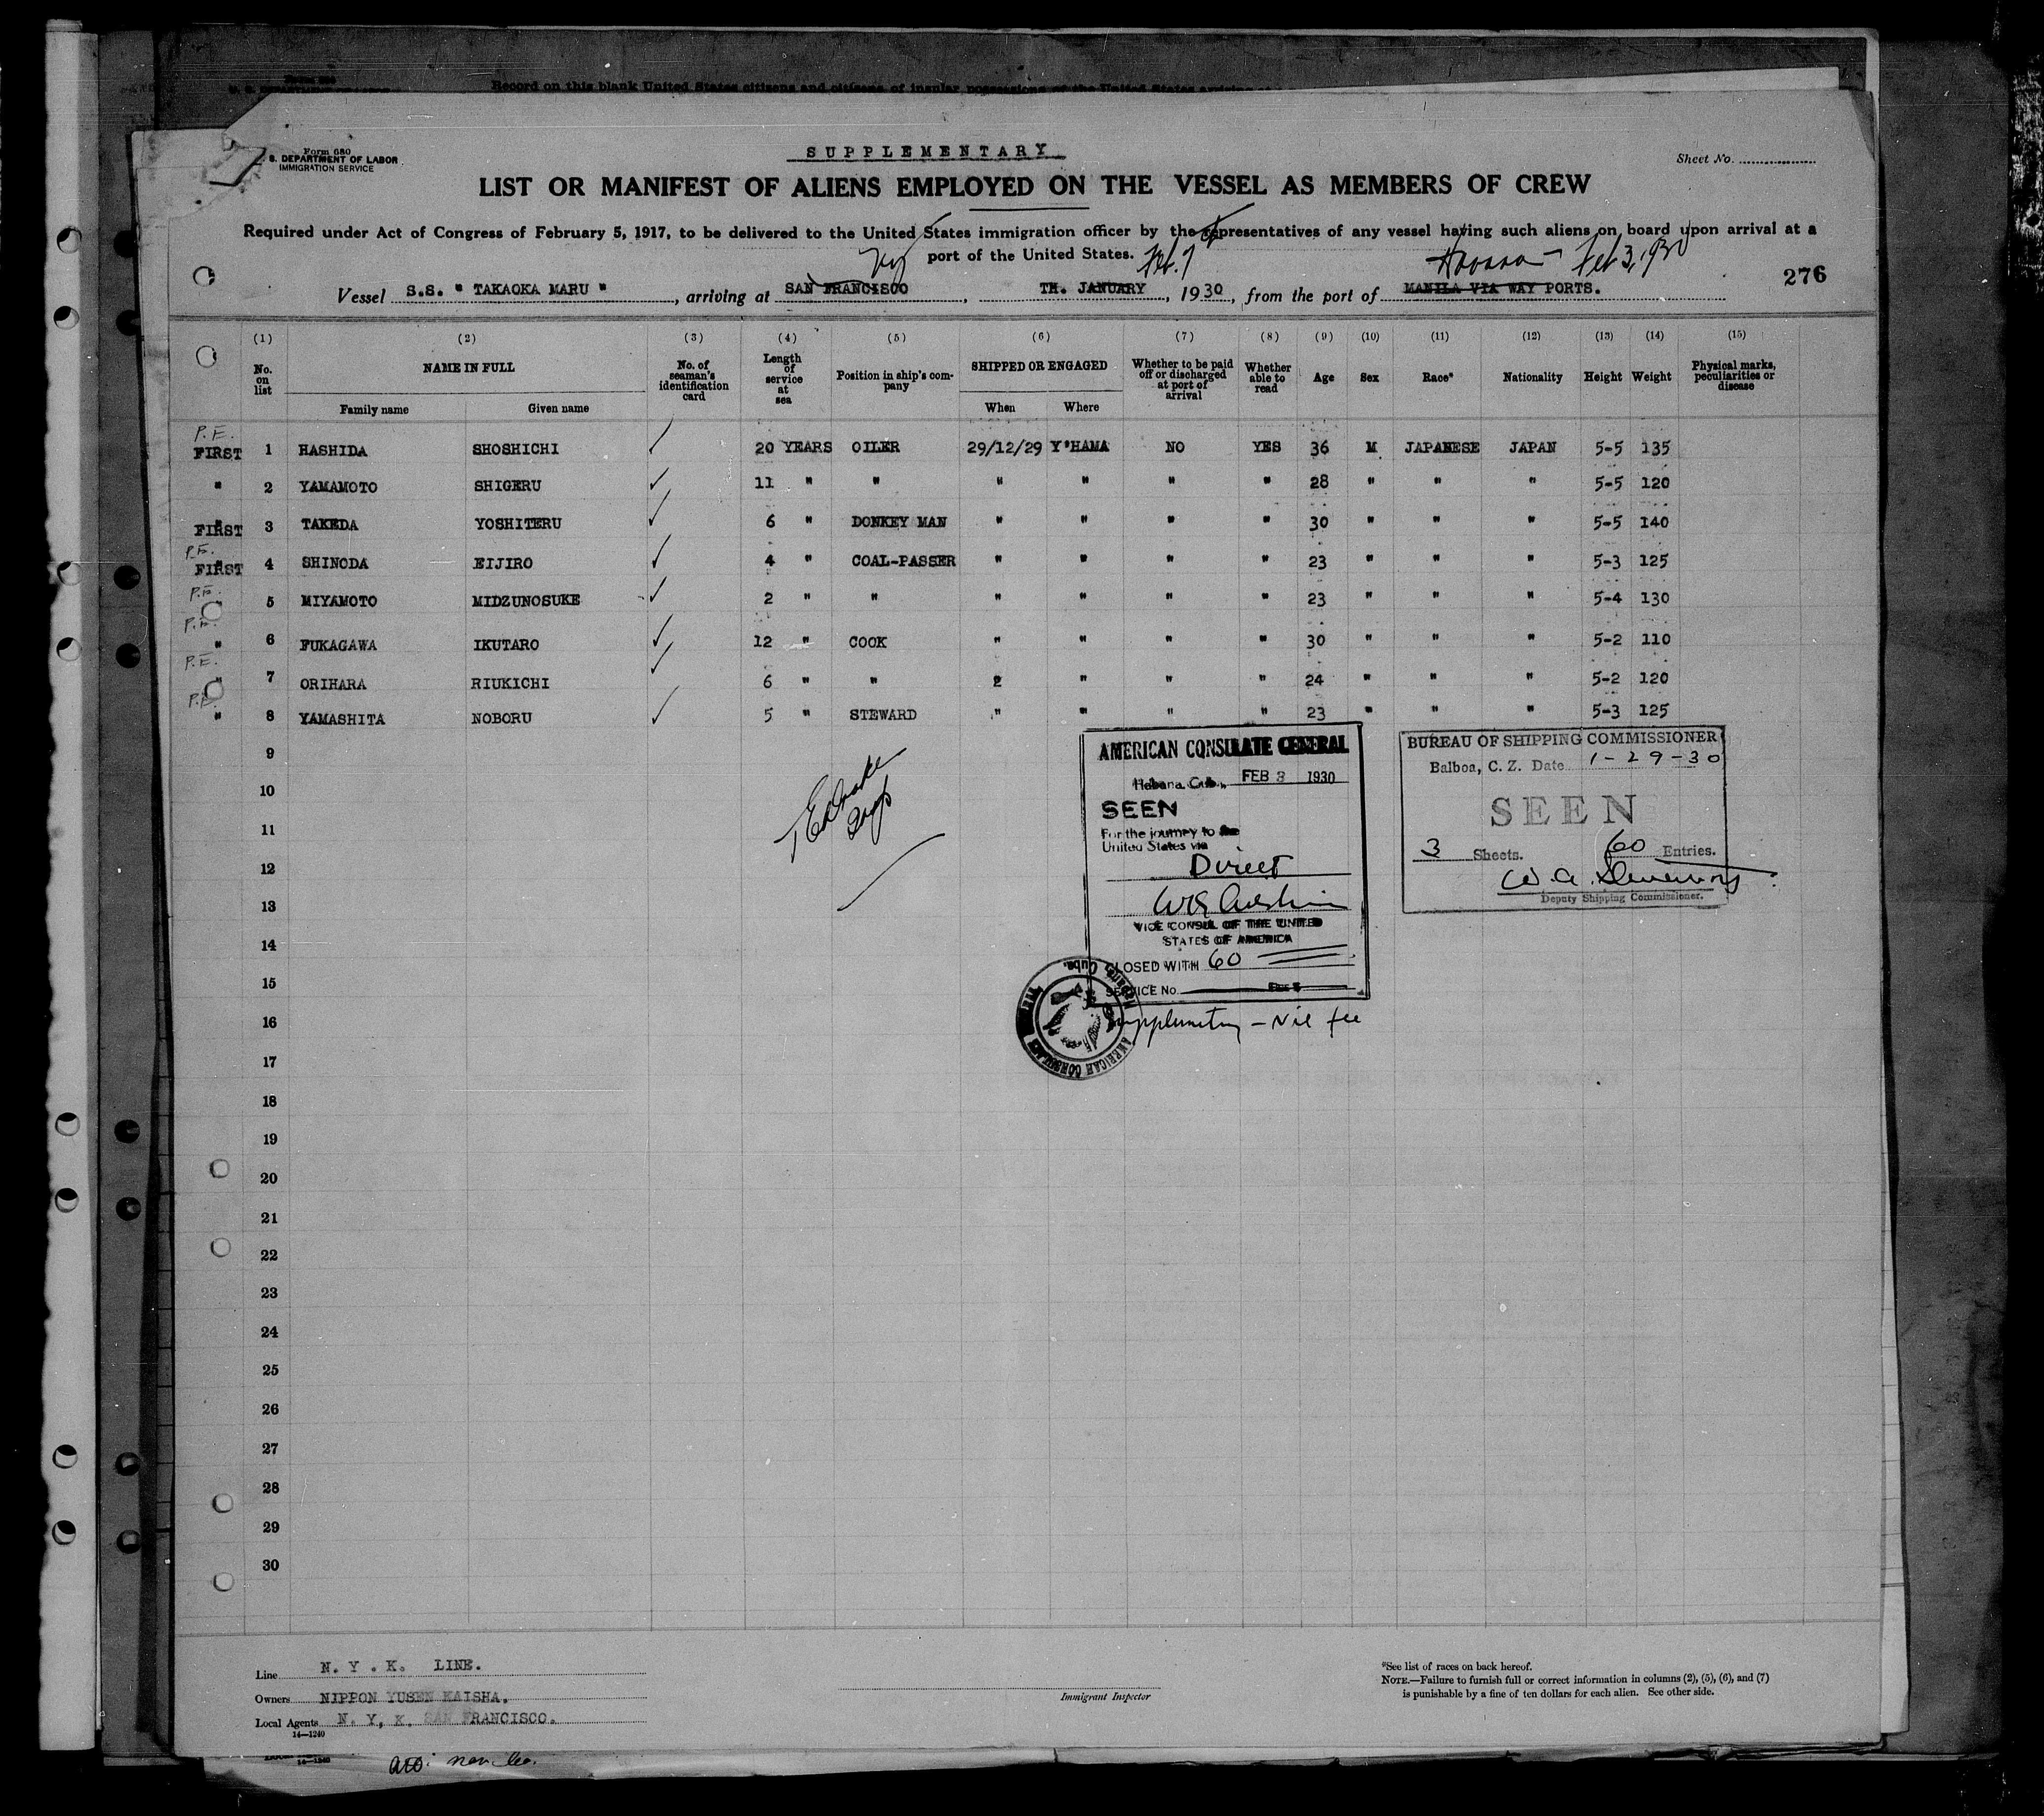 Record on this blank United States citizens and citizens of insular possessions of the United States
Form 680
S. DEPARTMENT OF LABOR
IMMIGRATION SERVICE
SUPPLEMENTARY
Sheet No.
LIST OR MANIFEST OF ALIENS EMPLOYED ON THE VESSEL AS MEMBERS OF CREW
Required under Act of Congress of February 5, 1917, to be delivered to the United States immigration officer by the representatives of any vessel having such aliens on board upon arrival at a
port of the United States.
NY Feb. 7 Havana - Feb 3, 1930
276
Vessel S.S. " TAKAOKA MARU ", arriving at SAN FRANCISCO, TH. JANUARY, 1930, from the port of MANILA VIA WAY PORTS.
(1) (2) (3) (4) (5) (6) (7) (8) (9) (10) (11) (12) (13) (14) (15)
No. on list NAME IN FULL Family name Given name No. of seaman's identification card Length of service at sea Position in ship's company SHIPPED OR ENGAGED When Where Whether to be paid off or discharged at port of arrival Whether able to read Age Sex Race* Nationality Height Weight Physical marks, peculiarities or disease
P.E.
FIRST 1 HASHIDA SHOSHICHI ✓ 20 YEARS OILER 29/12/29 Y'HAMA NO YES 36 M JAPANESE JAPAN 5-5 135
" 2 YAMAMOTO SHIGERU ✓ 11 " " " " " " 28 " " " 5-5 120
"
FIRST 3 TAKEDA YOSHITERU ✓ 6 " DONKEY MAN " " " " 30 " " " 5-5 140
P.E.
"
FIRST 4 SHINODA EIJIRO ✓ 4 " COAL-PASSER " " " " 23 " " " 5-3 125
P.E.
5 MIYAMOTO MIDZUNOSUKE ✓ 2 " " " " " " 23 " " " 5-4 130
P.E.
" 6 FUKAGAWA IKUTARO ✓ 12 " COOK " " " " 30 " " " 5-2 110
P.E.
" 7 ORIHARA RIUKICHI ✓ 6 " " 2 " " " 24 " " " 5-2 120
P.E.
" 8 YAMASHITA NOBORU ✓ 5 " STEWARD " " " " 23 " " " 5-3 125
9
10
11
12
13
14
15
16
17
18
19
20
21
22
23
24
25
26
27
28
29
30
AMERICAN CONSULATE GENERAL
Habana, Cuba, FEB 3 1930
SEEN
For the journey to the
United States via
Direct
VICE CONSUL OF THE UNITED
STATES OF AMERICA
CLOSED WITH 60
SERVICE No.
Supplementary - Nil fee
AMERICAN CONSULATE
Habana, Cuba.
BUREAU OF SHIPPING COMMISSIONER
Balboa, C. Z. Date 1-29-30
SEEN
3 Sheets. 60 Entries.
Deputy Shipping Commissioner.
Line N. Y. K. LINE.
Owners NIPPON YUSEN KAISHA.
Local Agents N. Y. K. SAN FRANCISCO.
14—1240
Immigrant Inspector
*See list of races on back hereof.
NOTE.—Failure to furnish full or correct information in columns (2), (5), (6), and (7)
is punishable by a fine of ten dollars for each alien. See other side.